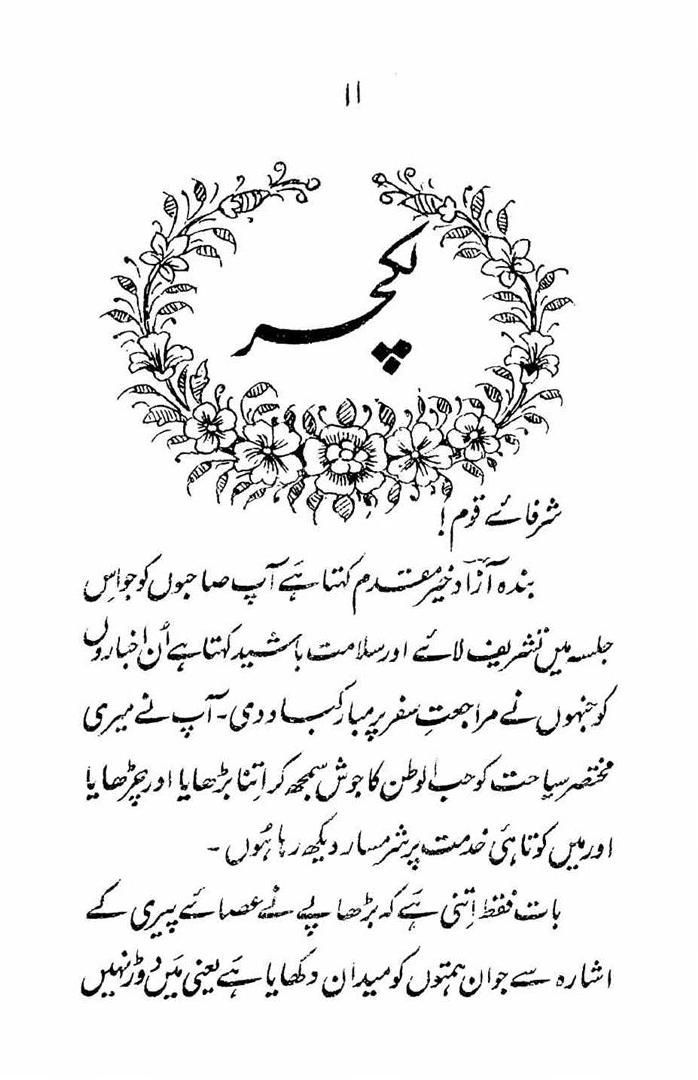 ۱۱
لکچر
شرفائے قوم!
بندہ آزاد خیر مقدم کہتا ہے آپ صاحبوں کو جو اِس
جلسہ میں تشریف لائے اور سلامت باشید کہتا ہے اُن اخباروں
کو جنہوں نے مراجعتِ سفر پر مبارکباد دی۔ آپ نے میری
مختصر سیاحت کو حب الوطن کا جوش سمجھ کر اِتنا بڑھایا اور چڑھایا
اور میں کوتاہئ خدمت پر شرمسار دیکھ رہا ہُوں۔
بات فقط اِتنی ہے کہ بڑھاپے نے عصائے پیری کے
اشارہ سے جوان ہمتوں کو میدان دکھایا ہے یعنی میں دوڑ نہیں